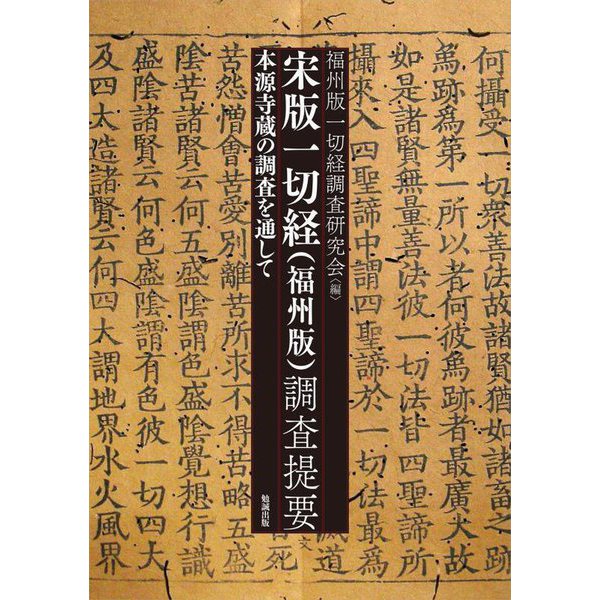 福州版一切経調査研究会〈編〉
宋版一切経（福州版）調査提要
本源寺蔵の調査を通して
勉誠出版
何攝受一切衆善法故諸賢猶如諸畜
爲跡爲第一所以者何彼爲跡者最廣大故
如是諸賢無量善法彼一切法皆四聖諦所
攝來入四聖諦中謂四聖諦於一切法
文
滅道
苦死
苦怨憎會苦愛別離苦所求不得苦略五盛
陰苦諸賢云何五盛陰謂色盛陰覺想行識
盛陰諸賢云何色盛陰謂有色彼一切四大
及四大造諸賢云何四大謂地界水火風界